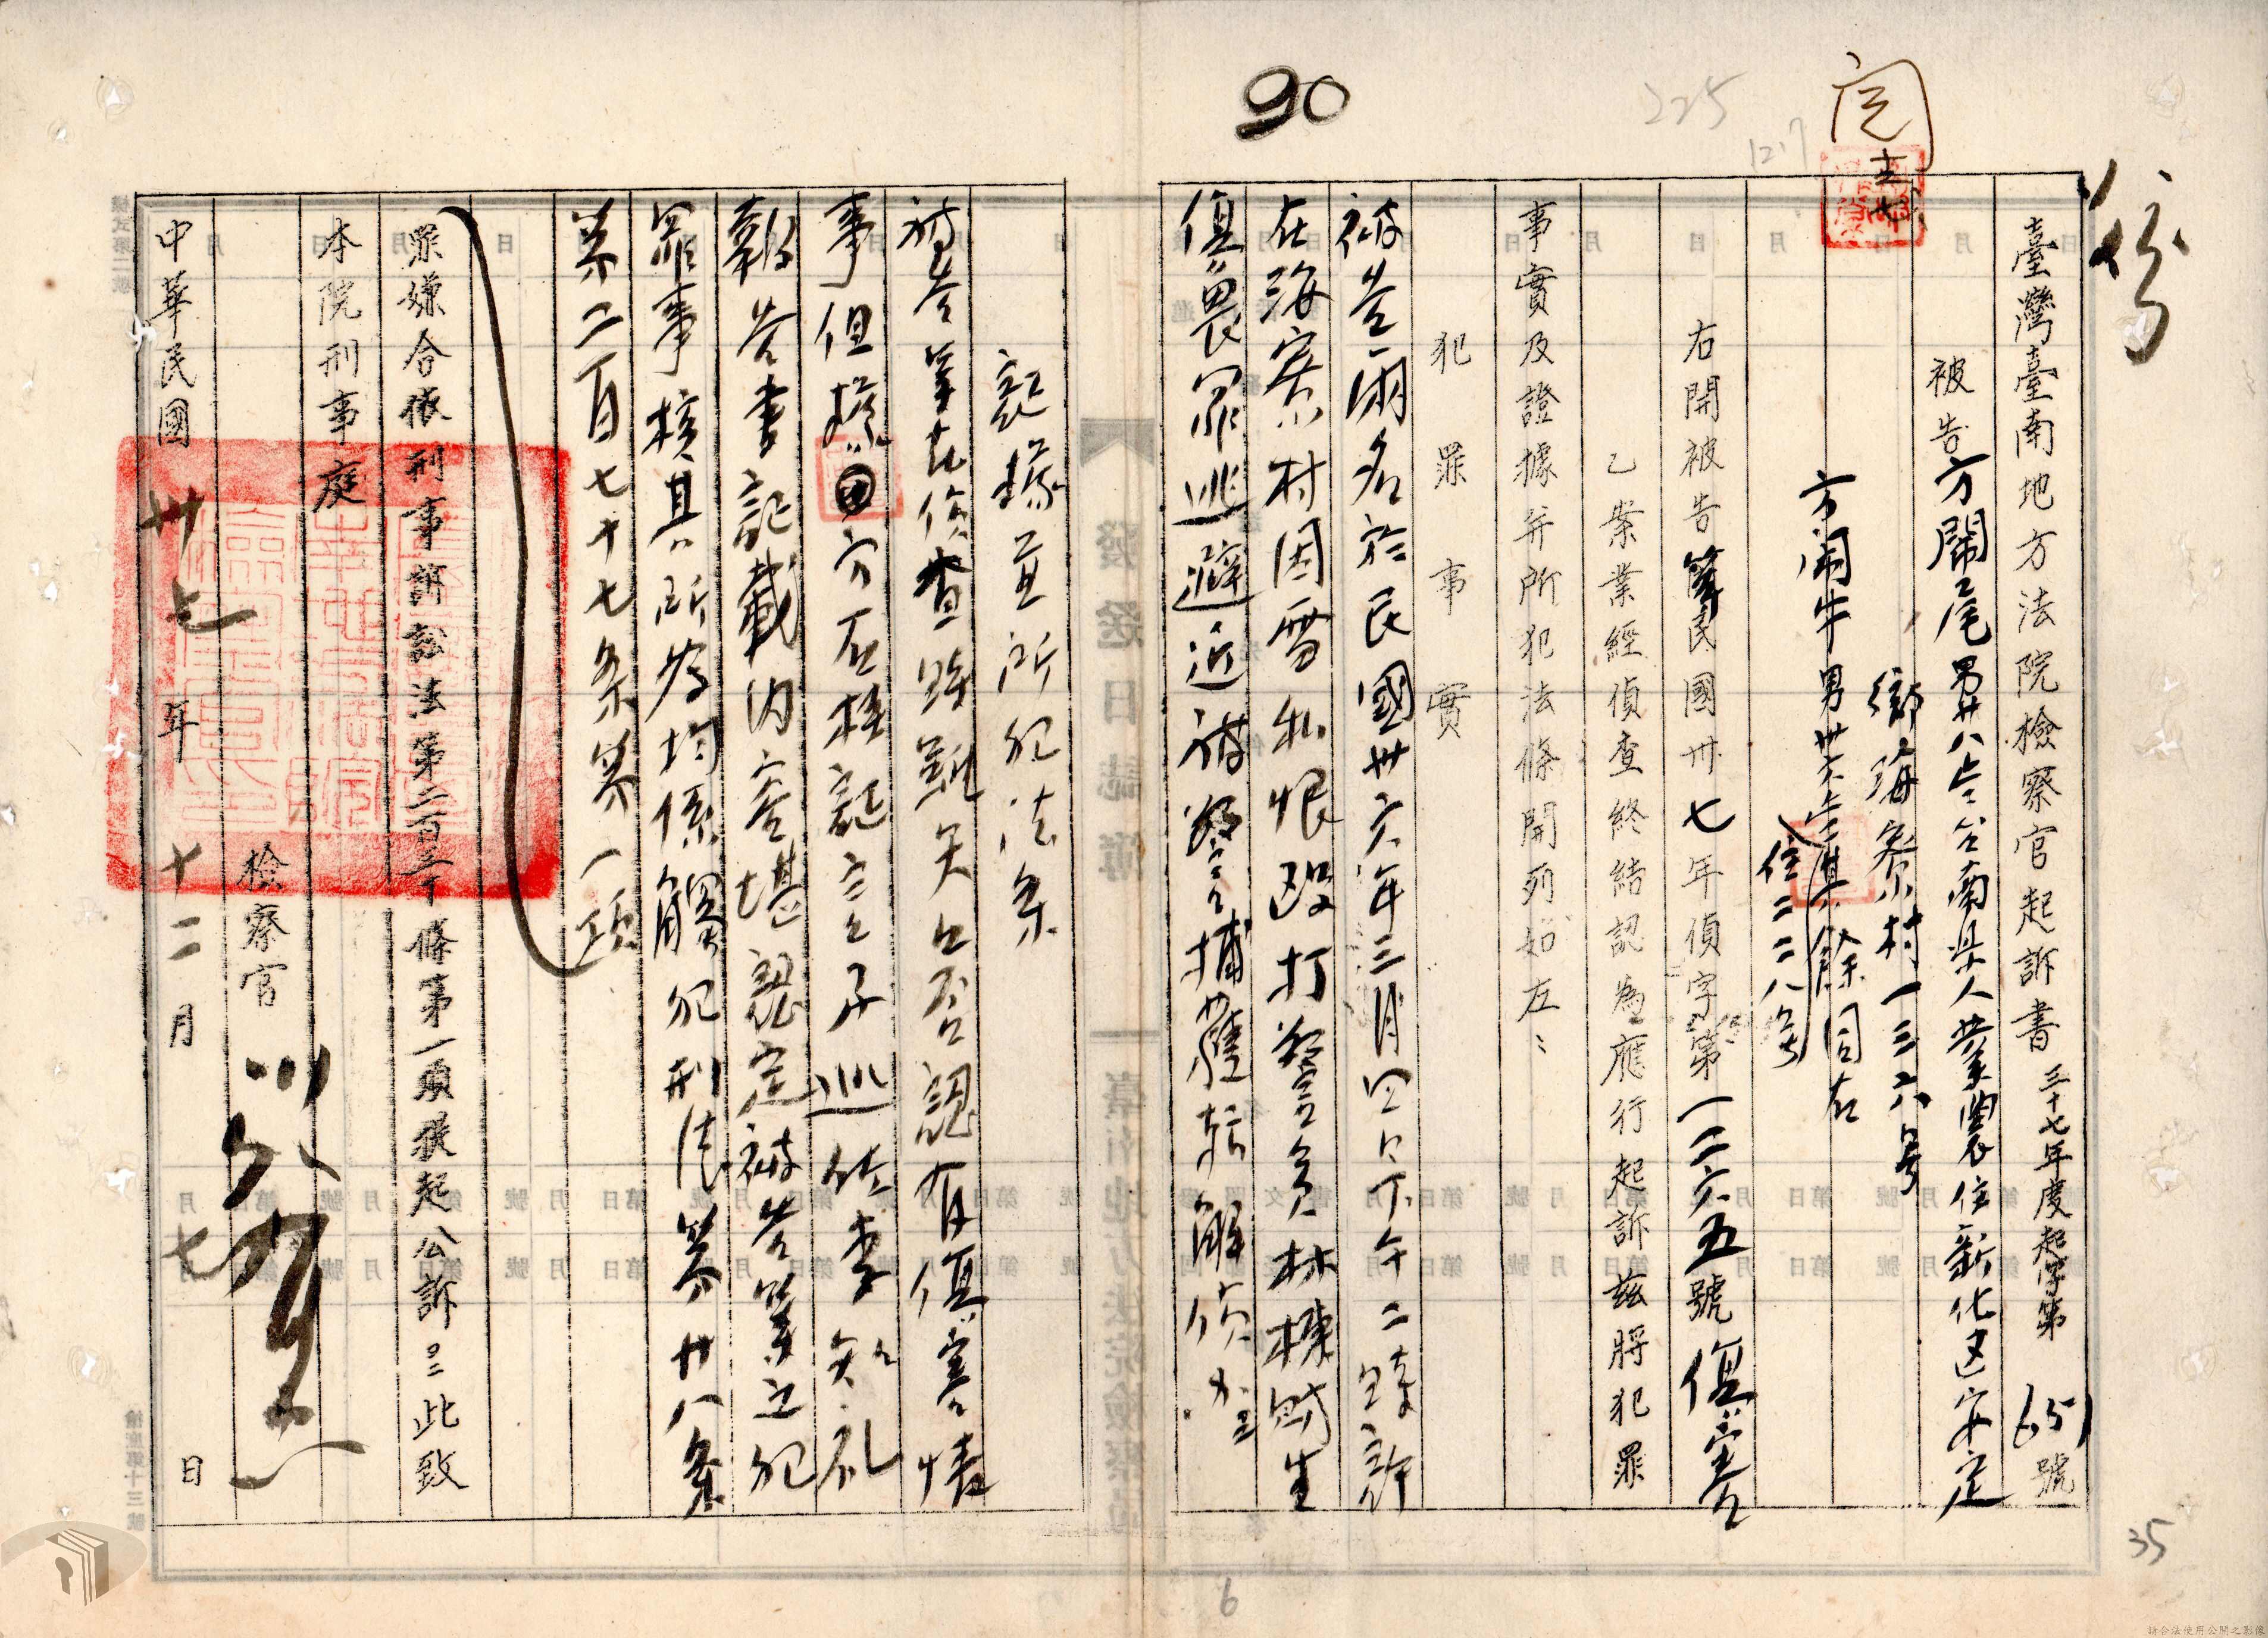 90
225
1217
臺灣臺南地方法院檢察官起訴書 三十七年度起字第651號
被告 方鬧尾 男廿八歲台南県人業農住新化区安定
鄉海寮村一三六号
方鬧牛 男卅六歲業餘同右
住二二八号
右開被告等民國卅七年偵字第一二六五號傷害
乙案業經偵查終結認為應行起訴茲將犯罪
事實及證據并所犯法條開列如左:
犯罪事實
被告兩名於民國卅六年三月四日下午二時許
在海寮村因雪私恨毆打警員林棟材生
傷畏罪逃避近被警捕獲轉解偵查
証據並所犯法条
被告等在偵查雖矢口否認有傷害情
事但據方在格証言之子巡佐李知礼
報告書記載內容堪認定被告等之犯
罪事核其所為均係觸犯刑法第廿八条
第二百七十七条第一項
罪嫌合依刑事訴訟法第二百三十條第一項提起公訴此致
本院刑事庭
檢察官
中華民國卅七年十二月七日
35
6
請合法使用公開之影像